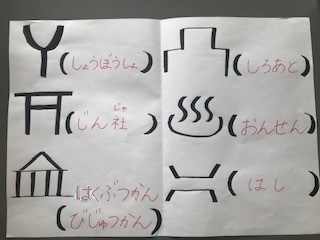 (しょうぼうしょ)
(しろあと)
(じん社(じゃ))
(おんせん)
はくぶつかん
(びじゅつかん)
(はし)